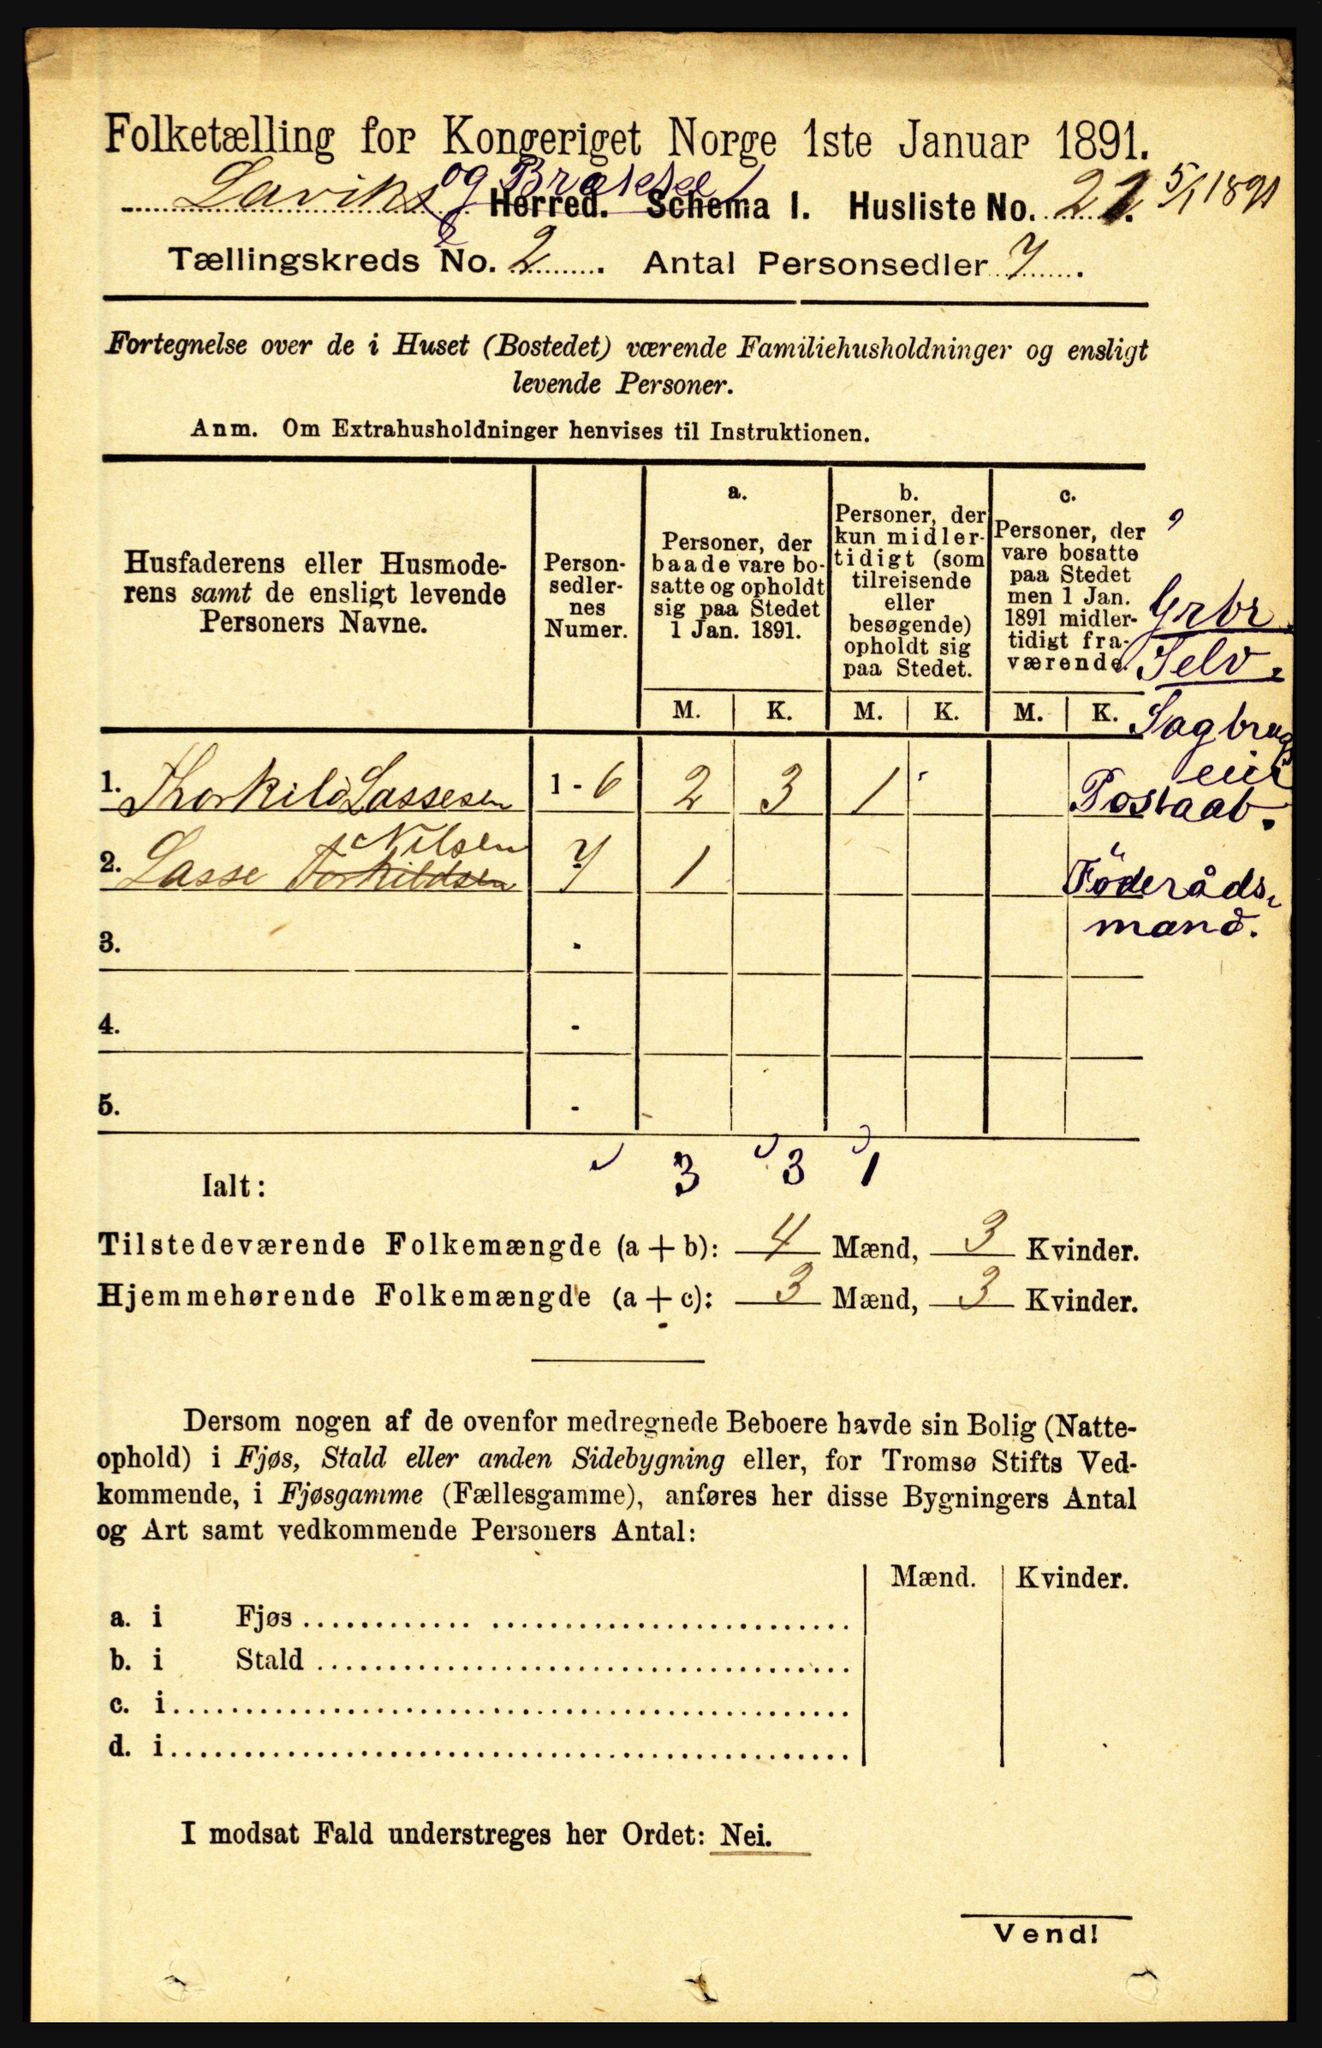 Folketælling for Kongeriget Norge 1ste Januar 1891.
Laviks og Brække Herred. Schema I. Husliste No. 21. 5/1 1891
Tællingskreds No. 2. Antal Personsedler 7.
Fortegnelse over de i Huset (Bostedet) værende Familiehusholdninger og ensligt
levende Personer.
Anm. Om Extrahusholdninger henvises til Instruktionen.
Husfaderens eller Husmode-
rens samt de ensligt levende
Personers Navne.
Person-
sedler-
nes
Numer.
a.
Personer, der
baade vare bo-
satte og opholdt
sig paa Stedet
1 Jan. 1891.
b.
Personer, der
kun midler-
tidigt (som
tilreisende
eller
besøgende)
opholdt sig
paa Stedet.
c.
Personer, der
vare bosatte
paa Stedet
men 1 Jan.
1891 midler-
tidigt fra-
værende.
Grbr.
Selv.
M. K. M. K. M. K.
Sagbrugs
eier
Postaab.
1. Thorkild Lassesen 1 - 6 2 3 1
Nilsen
2. Lasse Torkildsen 7 1
Föderåds-
mand.
3. -
4. -
5. -
Ialt: 3 3 1
Tilstedeværende Folkemængde (a + b): 4 Mænd, 3 Kvinder.
Hjemmehørende Folkemængde (a + c): 3 Mænd, 3 Kvinder.
Dersom nogen af de ovenfor medregnede Beboere havde sin Bolig (Natte-
ophold) i Fjøs, Stald eller anden Sidebygning eller, for Tromsø Stifts Ved-
kommende, i Fjøsgamme (Fællesgamme), anføres her disse Bygningers Antal
og Art samt vedkommende Personers Antal:
Mænd. Kvinder.
a. i Fjøs
b. i Stald
c. i
d. i
I modsat Fald understreges her Ordet: Nei.
Vend!